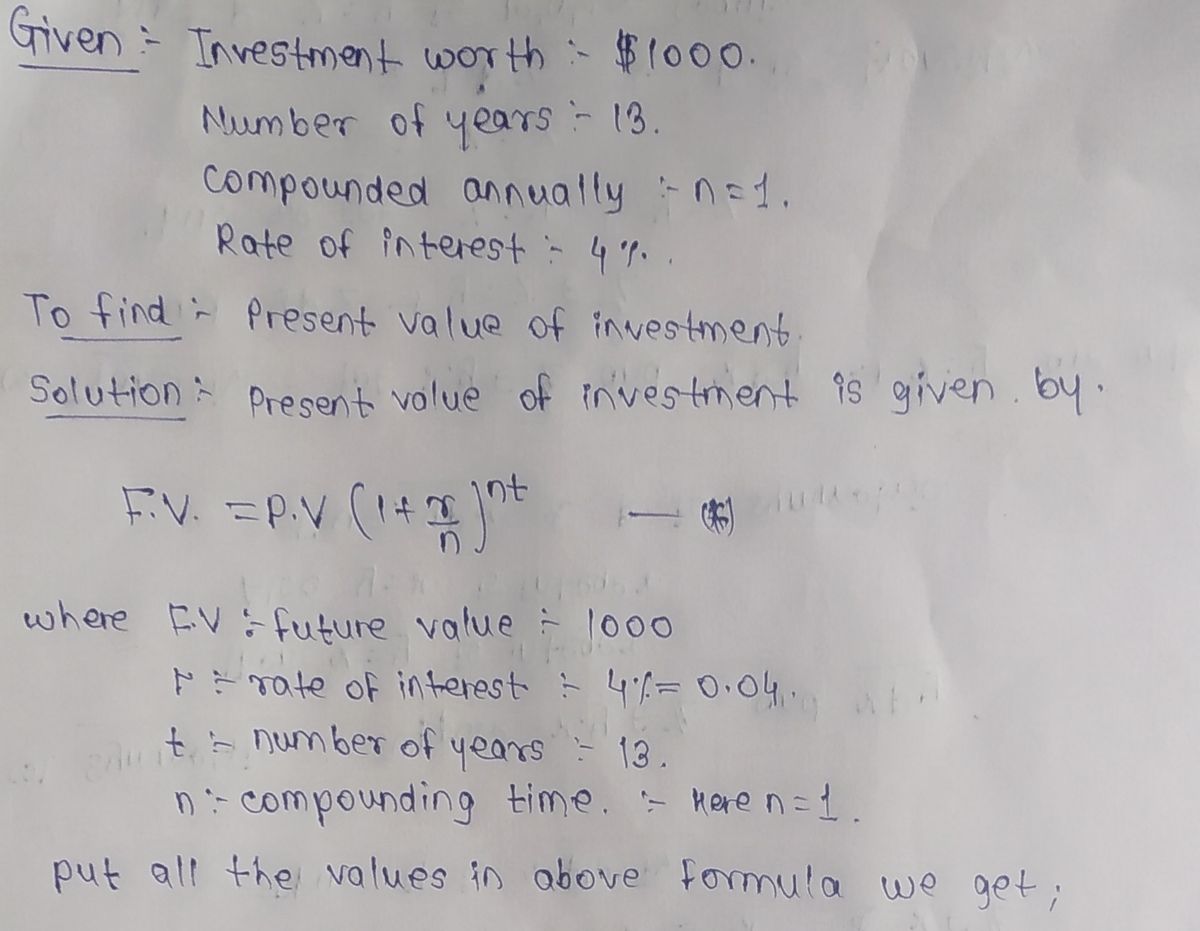 Given :- Investment worth :- $1000.
Number of years :- 13.
compounded annually :- n=1.
Rate of interest :- 4%.
To find :- Present value of investment.
Solution :- Present value of investment is given by.
F.V. = P.V (1+ r/n)^nt — (*)
where F.V :- future value :- 1000
r :- rate of interest :- 4% = 0.04.
t :- number of years :- 13.
n :- compounding time. :- Here n=1.
put all the values in above formula we get;